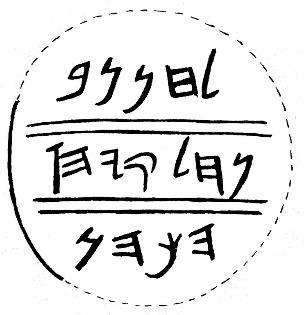 𐤋𐤇𐤍𐤍𐤁
𐤍𐤇𐤋𐤒𐤉𐤄𐤅
𐤄𐤊𐤄𐤍